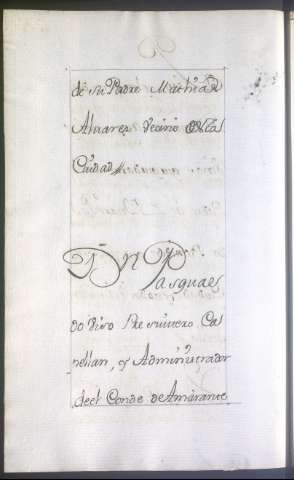 de su Padre Mathias
Alvarez Vecino de la
Ciudad
Dn Pasqual
do Viso Presvitero Ca
pellan, y Administrador
del Conde de Amarante